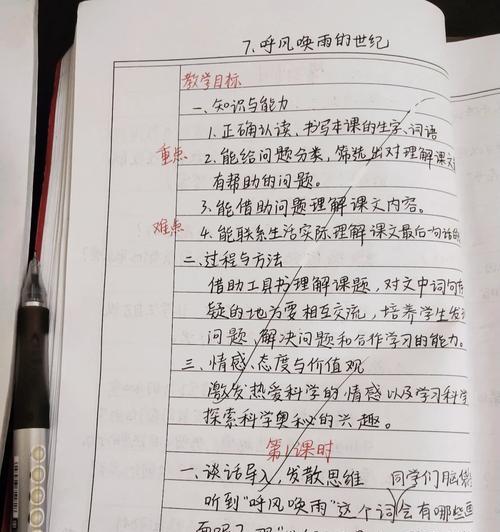 7.呼风唤雨的世纪
教学目标
一、知识与能力
1.正确认读、书写本课的生字、词语
重点 2.能给问题分类，筛选出对理解课文
有帮助的问题。
3.能借助问题理解课文内容。
难点 4.能联系生活实际理解课文最后一句话的
二、过程与方法
借助工具书理解课题，对文中词句有
疑的地方要相互交流，培养学生发现
问题、解决问题和合作学习的能力。
三、情感、态度与价值观
激发热爱科学的情感以及学习科学
探索科学奥秘的兴趣。
第1课时
一、谈话导入，发散思维 同学们
听到"呼风唤雨"这个词会有哪些画
面呢？